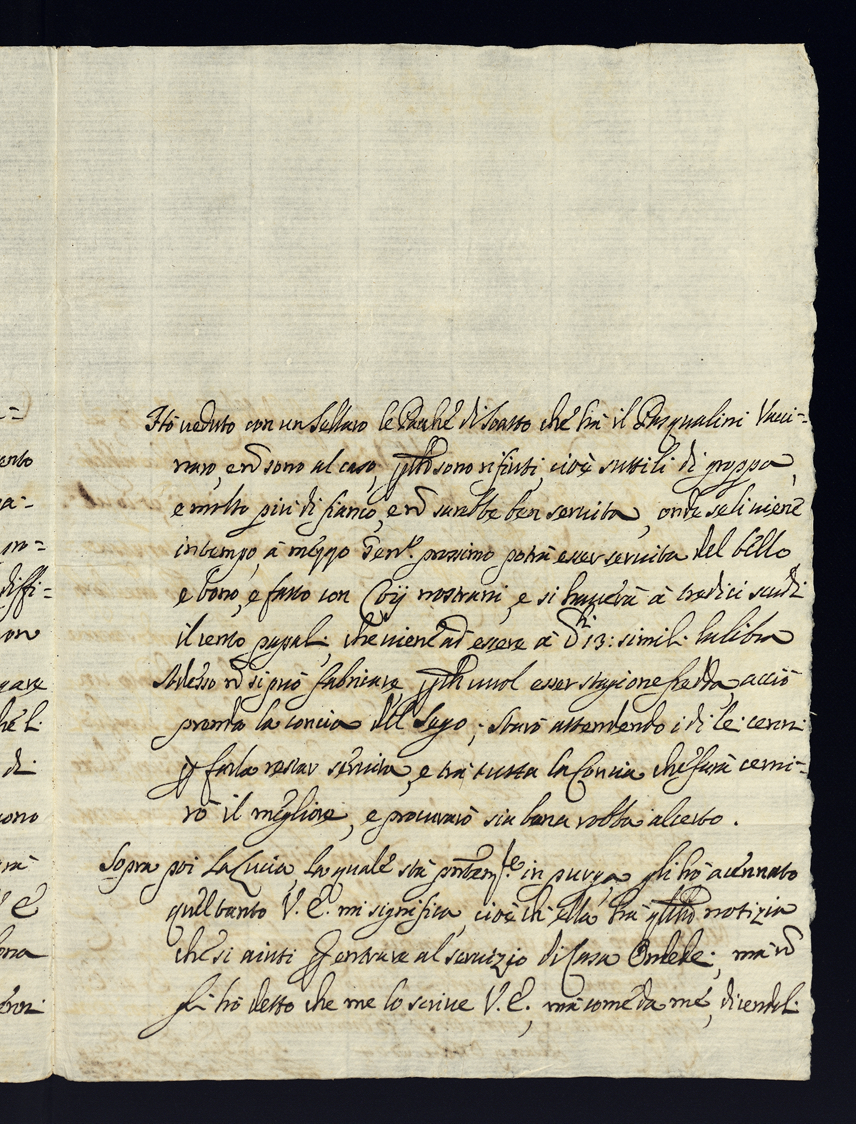 Hò veduto con un Sellaro le Pache di Soatto che hà il Pasqualini Vacci=
naro, e nõ sono al caso, sono rifiuti, cioè suttili di groppa,
e molto più di fianco, e nõ sarebbe ben servita, onde se li viene
in tempo, à mezzo Genro prossimo potrà esser servita del bello
e bono, e fatto con Coij nostrani, e si haverà à tredici scudi
il cento papali, che viene ad essere à 13: simili la libra
Adesso nõ si può fabricare, vuol esser stagione fredda, acciò
prenda la concia del Sego; starò attendendo i di lei cenni
farla restar servita, e trà tutta la Concia che farà cerni=
rò il megliore, e procurarò sia bona robba al certo.
Sopra poi La Lucia, la quale stà in purga, gli hò acennato
quel tanto V. E. mi significa, cioè ch'ella hà notizia
che si aiuti entrare al servizio di Casa mà nõ
gli hò detto che me lo scrive V. E., mà come da me, dicendoli
ento
diffi=
gave
di
V E